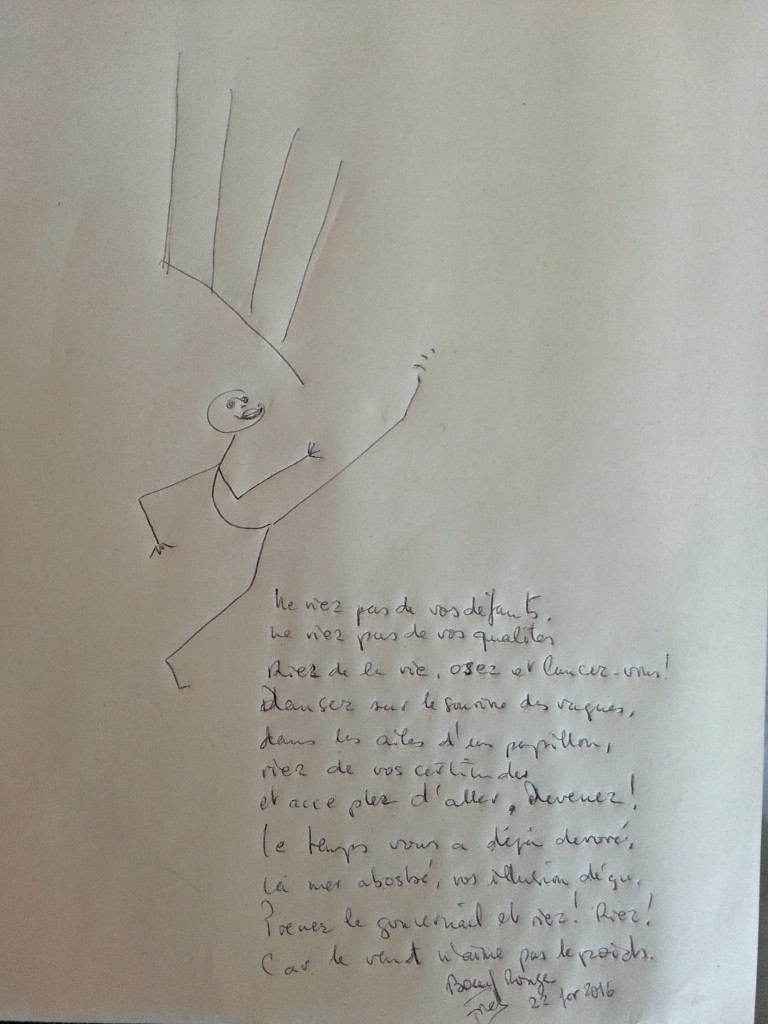 Ne riez pas de vos défauts,
ne riez pas de vos qualités
Riez de la vie, osez et lancez-vous!
Dansez sur le sourire des vagues,
dans les ailes d'un papillon,
riez de vos certitudes
et acceptez d'aller, Devenez!
Le temps vous a déjà dévoré,
La mer absorbé, vos illusion déçu.
Prenez le gouvernail et riez! Riez!
Car le vent n'aime pas le poids.
Boeuf Rouge
22 2016